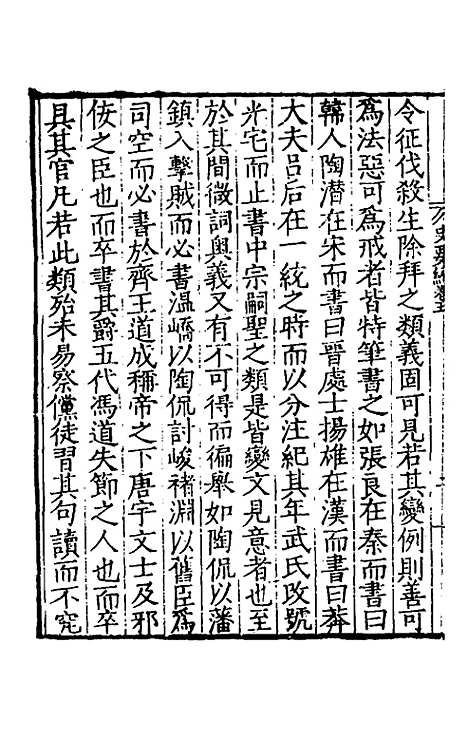 令征伐殺生除拜之類義固可見若其變例則善可
爲法惡可爲戒者皆特筆書之如張良在秦而書曰
韓人陶潜在宋而書曰晉處士揚雄在漢而書曰莽
大夫呂后在一統之時而以分注紀其年武氏改號
光宅而止書中宗嗣聖之類是皆變文見意者也至
於其間微詞奥義又有不可得而徧舉如陶侃以藩
鎮入擊賊而必書溫嶠以陶侃討峻褚淵以舊臣爲
司空而必書於齊王道成稱帝之下唐宇文士及邪
佞之臣也而卒書其爵五代馮道失節之人也而卒
具其官凡若此類殆未易察儻徒習其句讀而不究